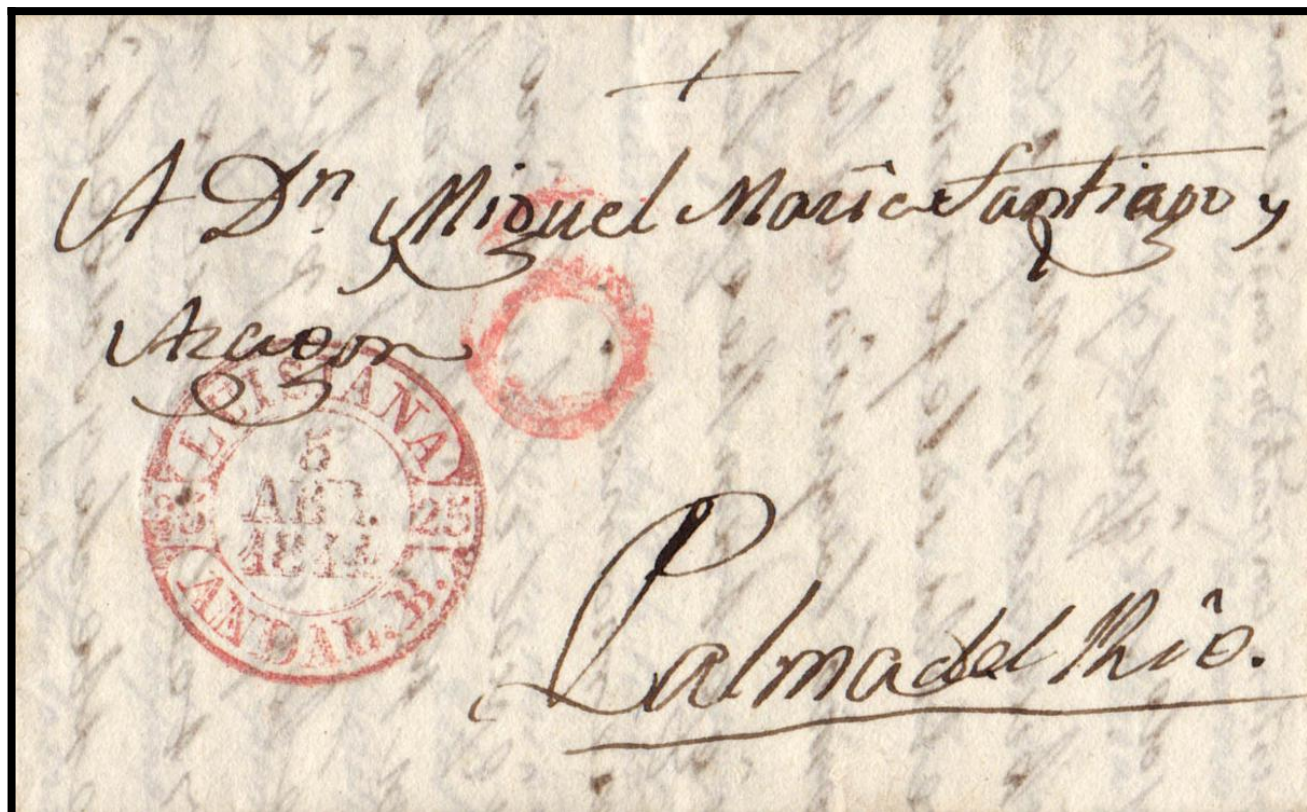 A Dn. Miguel Maria Santiago y
Aragon
LUISIANA
5
ABR.
25
25
ANDAL. B.
Palma del Rio.